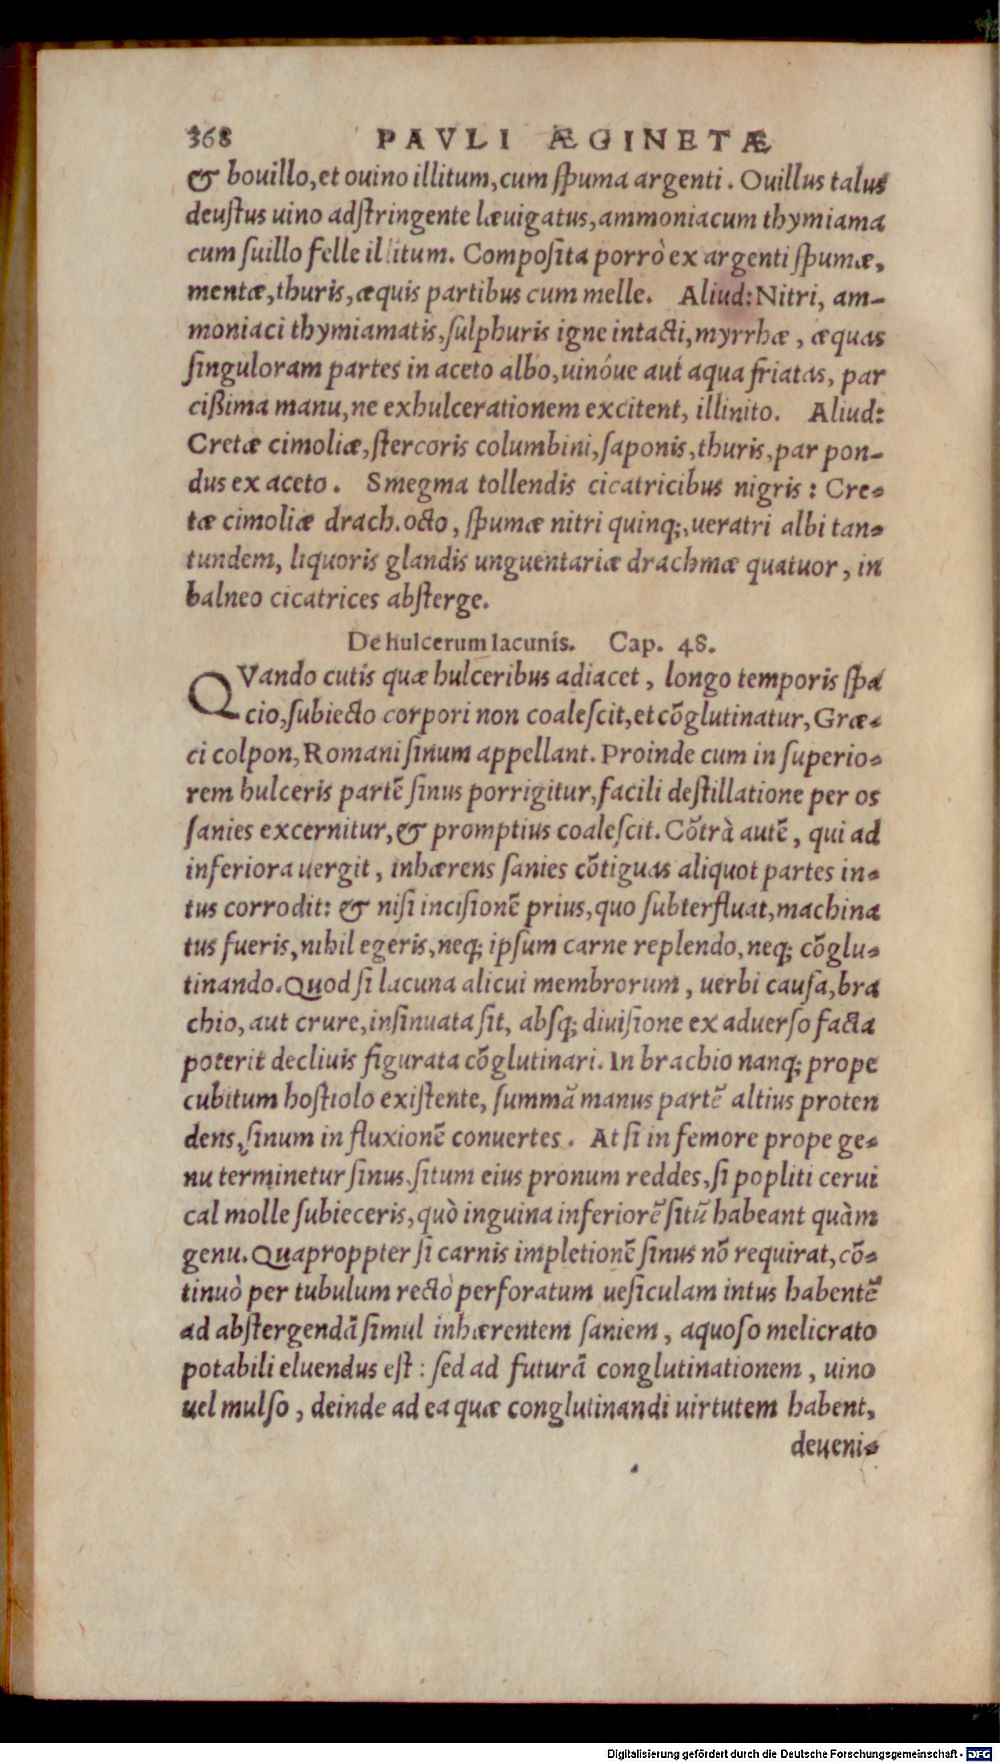 368 PAVLI ÆGINETÆ
& bouillo, et ouino illitum, cum ſpuma argenti. Ouillus talus
deuſtus uino adſtringente læuigatus, ammoniacum thymiama
cum ſuillo felle illitum. Compoſita porrò ex argenti ſpumæ,
mentæ, thuris, æquis partibus cum melle. Aliud: Nitri, am-
moniaci thymiamatis, ſulphuris igne intacti, myrrhæ, æquas
ſinguloram partes in aceto albo, uinóue aut aqua friatas, par
cißima manu, ne exhulcerationem excitent, illinito. Aliud:
Cretæ cimoliæ, ſtercoris columbini, ſaponis, thuris, par pon-
dus ex aceto. Smegma tollendis cicatricibus nigris: Cre-
tæ cimoliæ drach. octo, ſpumæ nitri quinq;, ueratri albi tan-
tundem, liquoris glandis unguentariæ drachmæ quatuor, in
balneo cicatrices abſterge.
De hulcerum lacunis. Cap. 48.
QVando cutis quæ hulceribus adiacet, longo temporis ſpa
cio, ſubiecto corpori non coaleſcit, et cõglutinatur, Græ-
ci colpon, Romani ſinum appellant. Proinde cum in ſuperio-
rem hulceris partẽ ſinus porrigitur, facili deſtillatione per os
ſanies excernitur, & promptius coaleſcit. Cõtrà autẽ, qui ad
inferiora uergit, inhærens ſanies cõtiguas aliquot partes in-
tus corrodit: & niſi inciſionẽ prius, quo ſubterfluat, machina
tus fueris, nihil egeris, neq; ipſum carne replendo, neq; cõglu-
tinando. Quod ſi lacuna alicui membrorum, uerbi cauſa, bra
chio, aut crure, inſinuata ſit, abſq; diuiſione ex aduerſo facta
poterit decliuis figurata cõglutinari. In brachio nanq; prope
cubitum hoſtiolo exiſtente, ſummã manus partẽ altius proten
dens, ſinum in fluxionẽ conuertes. At ſi in femore prope ge-
nu terminetur ſinus, ſitum eius pronum reddes, ſi popliti cerui
cal molle ſubieceris, quò inguina inferiorẽ ſitũ habeant quàm
genu. Quaproppter ſi carnis impletionẽ ſinus nõ requirat, cõ-
tinuò per tubulum rectò perforatum ueſiculam intus habentẽ
ad abſtergendã ſimul inhærentem ſaniem, aquoſo melicrato
potabili eluendus eſt: ſed ad futurã conglutinationem, uino
uel mulſo, deinde ad ea quæ conglutinandi uirtutem habent,
deueni-
Digitalisierung gefördert durch die Deutsche Forschungsgemeinschaft - DFG